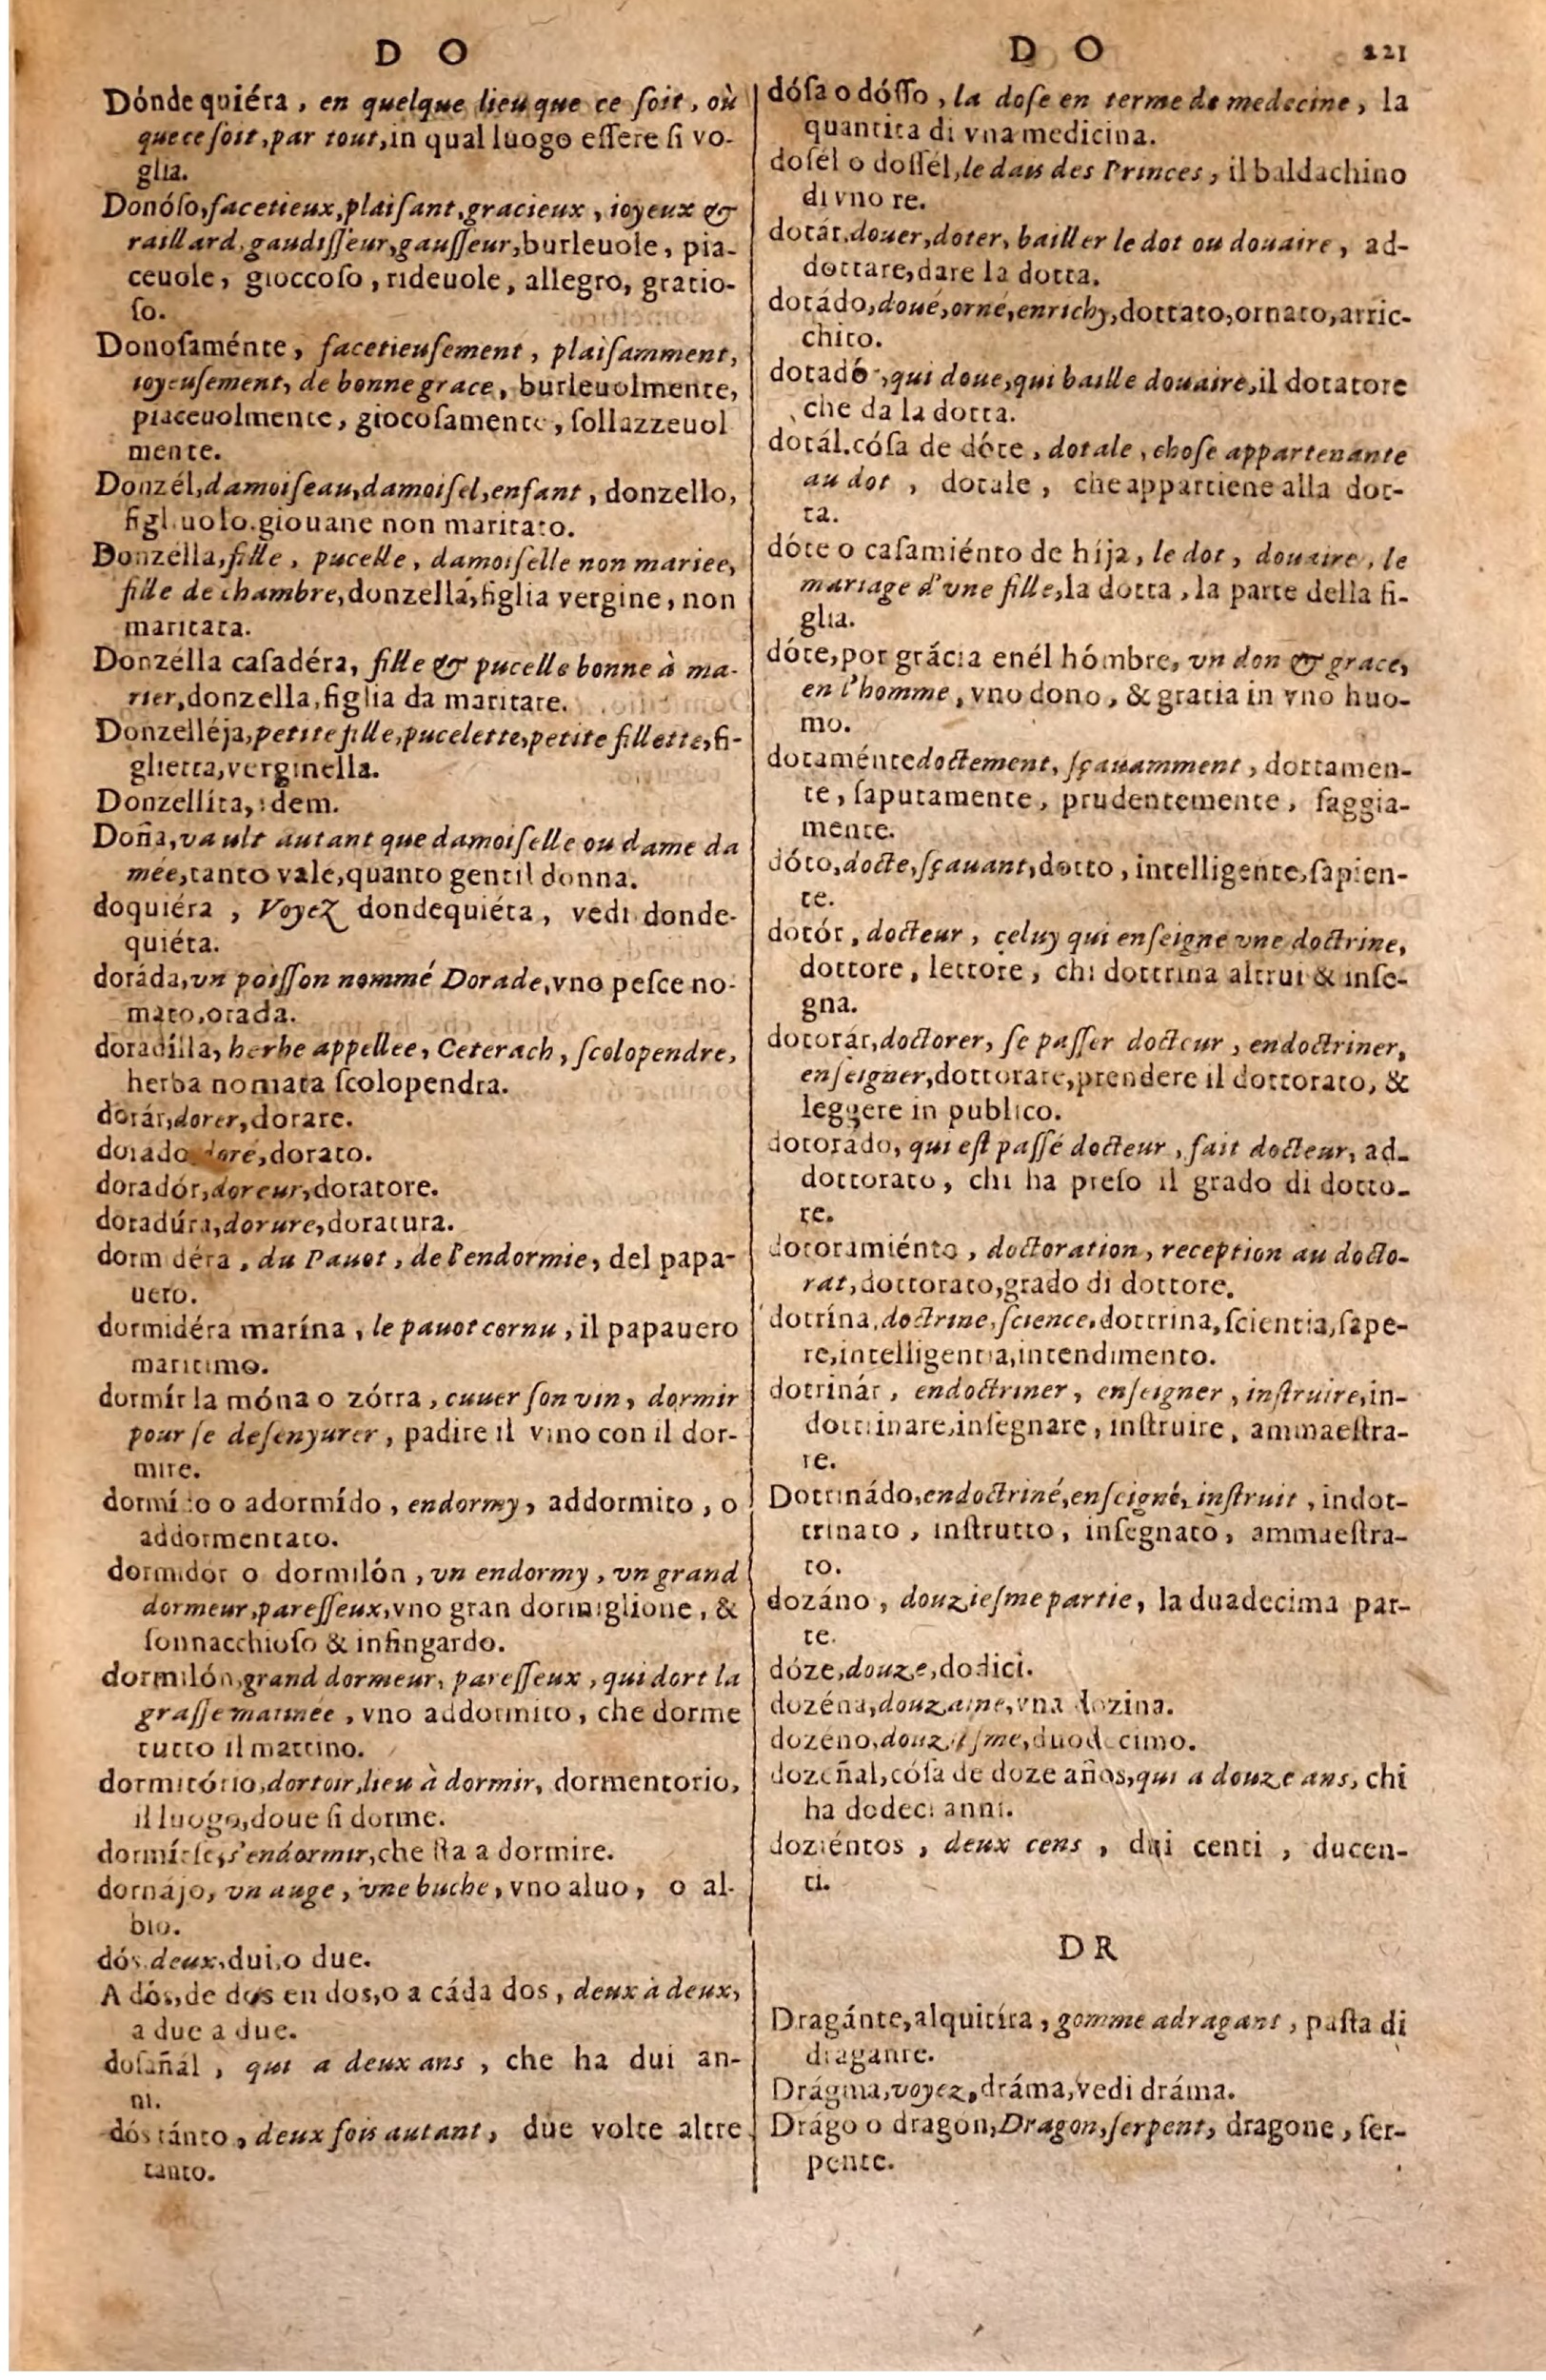 D O
Dónde quiéra, en quelque lieu que ce ſoit, où
que ce ſoit, par tout, in qual luogo eſſere ſi vo-
glia.
Donóſo, facetieux, plaiſant, gracieux, ioyeux &
raillard, gaudiſſeur, gauſſeur, burleuole, pia-
ceuole, gioccoſo, rideuole, allegro, gratio-
ſo.
Donoſaménte, facetieuſement, plaiſamment,
ioyeuſement, de bonne grace, burleuolmente,
piaceuolmente, giocoſamente, ſollazzeuol
mente.
Donzél, damoiſeau, damoiſel, enfant, donzello,
figliuolo. giouane non maritato.
Donzélla, fille, pucelle, damoiſelle non mariee,
fille de chambre, donzella, figlia vergine, non
maritata.
Donzélla caſadéra, fille & pucelle bonne à ma-
rier, donzella, figlia da maritare.
Donzelléja, petite fille, pucelette, petite fillette, fi-
glietta, verginella.
Donzellíta, idem.
Doña, vault autant que damoiſelle ou dame da
mée, tanto vale, quanto gentil donna.
doquiéra, Voyez dondequiéta, vedi donde-
quiéta.
doráda, vn poiſſon nommé Dorade, vno peſce no-
mato, orada.
doradílla, herbe appellee, Ceterach, ſcolopendre,
herba nomata ſcolopendra.
dorár, dorer, dorare.
dorado doré, dorato.
doradór, doreur, doratore.
doradúra, dorure, doratura.
dormidéra, du Pauot, de l'endormie, del papa-
uero.
dormidéra marína, le pauot cornu, il papauero
maritimo.
dormír la móna o zórra, cuuer ſon vin, dormir
pour ſe deſenyurer, padire il vino con il dor-
mire.
dormído o adormído, endormy, addormito, o
addormentato.
dormidór o dormilón, vn endormy, vn grand
dormeur, pareſſeux, vno gran dormiglione, &
ſonnacchioſo & infingardo.
dormilón, grand dormeur, pareſſeux, qui dort la
graſſe matinée, vno addormito, che dorme
tutto il mattino.
dormitório, dortoir, lieu à dormir, dormentorio,
il luogo, doue ſi dorme.
dormírſe, s'endormir, che ſta a dormire.
dornájo, vn auge, vne buche, vno aluo, o al-
bio.
dós, deux, dui, o due.
A dós, de dos en dos, o a cáda dos, deux à deux,
a due a due.
doſañál, qui a deux ans, che ha dui an-
ni.
dós tánto, deux fois autant, due volte altre
tanto.
D O 221
dóſa o dóſſo, la doſe en terme de medecine, la
quantita di vna medicina.
doſél o doſſél, le dais des Princes, il baldachino
di vno re.
dotár, douer, doter, bailler le dot ou douaire, ad-
dottare, dare la dotta.
dotádo, doué, orné, enrichy, dottato, ornato, arric-
chito.
dotadó, qui doue, qui baille douaire, il dotatore
che da la dotta.
dotál. cóſa de dóte, dotale, choſe appartenante
au dot, dotale, che appartiene alla dot-
ta.
dóte o caſamiénto de híja, le dot, douaire, le
mariage d'vne fille, la dotta, la parte della fi-
glia.
dóte, por grácia enél hómbre, vn don & grace,
en l'homme, vno dono, & gratia in vno huo-
mo.
dotaménte doctement, ſçauamment, dottamen-
te, ſaputamente, prudentemente, ſaggia-
mente.
dóto, docte, ſçauant, dotto, intelligente, ſapien-
te.
dotór, docteur, celuy qui enſeigne vne doctrine,
dottore, lettore, chi dottrina altrui & inſe-
gna.
dotorár, doctorer, ſe paſſer docteur, endoctriner,
enſeigner, dottorare, prendere il dottorato, &
leggere in publico.
dotorádo, qui eſt paſſé docteur, fait docteur, ad-
dottorato, chi ha preſo il grado di dotto-
re.
dotoramiénto, doctoration, reception au docto-
rat, dottorato, grado di dottore.
dotrína, doctrine, ſcience, dottrina, ſcientia, ſape-
re, intelligentia, intendimento.
dotrinár, endoctriner, enſeigner, inſtruire, in-
dottrinare, inſegnare, inſtruire, ammaeſtra-
re.
Dotrinádo, endoctriné, enſeigné, inſtruit, indot-
trinato, inſtrutto, inſegnato, ammaeſtra-
to.
dozáno, douzieſme partie, la duadecima par-
te.
dóze, douze, dodici.
dozéna, douzaine, vna dozina.
dozéno, douzieſme, duodecimo.
dozeñal, cóſa de doze años, qui a douze ans, chi
ha dodeci anni.
doziéntos, deux cens, dui centi, ducen-
ti.
D R
Dragánte, alquitíra, gomme adragant, paſta di
dragante.
Drágma, voyez, dráma, vedi dráma.
Drágo o dragón, Dragon, ſerpent, dragone, ſer-
pente.